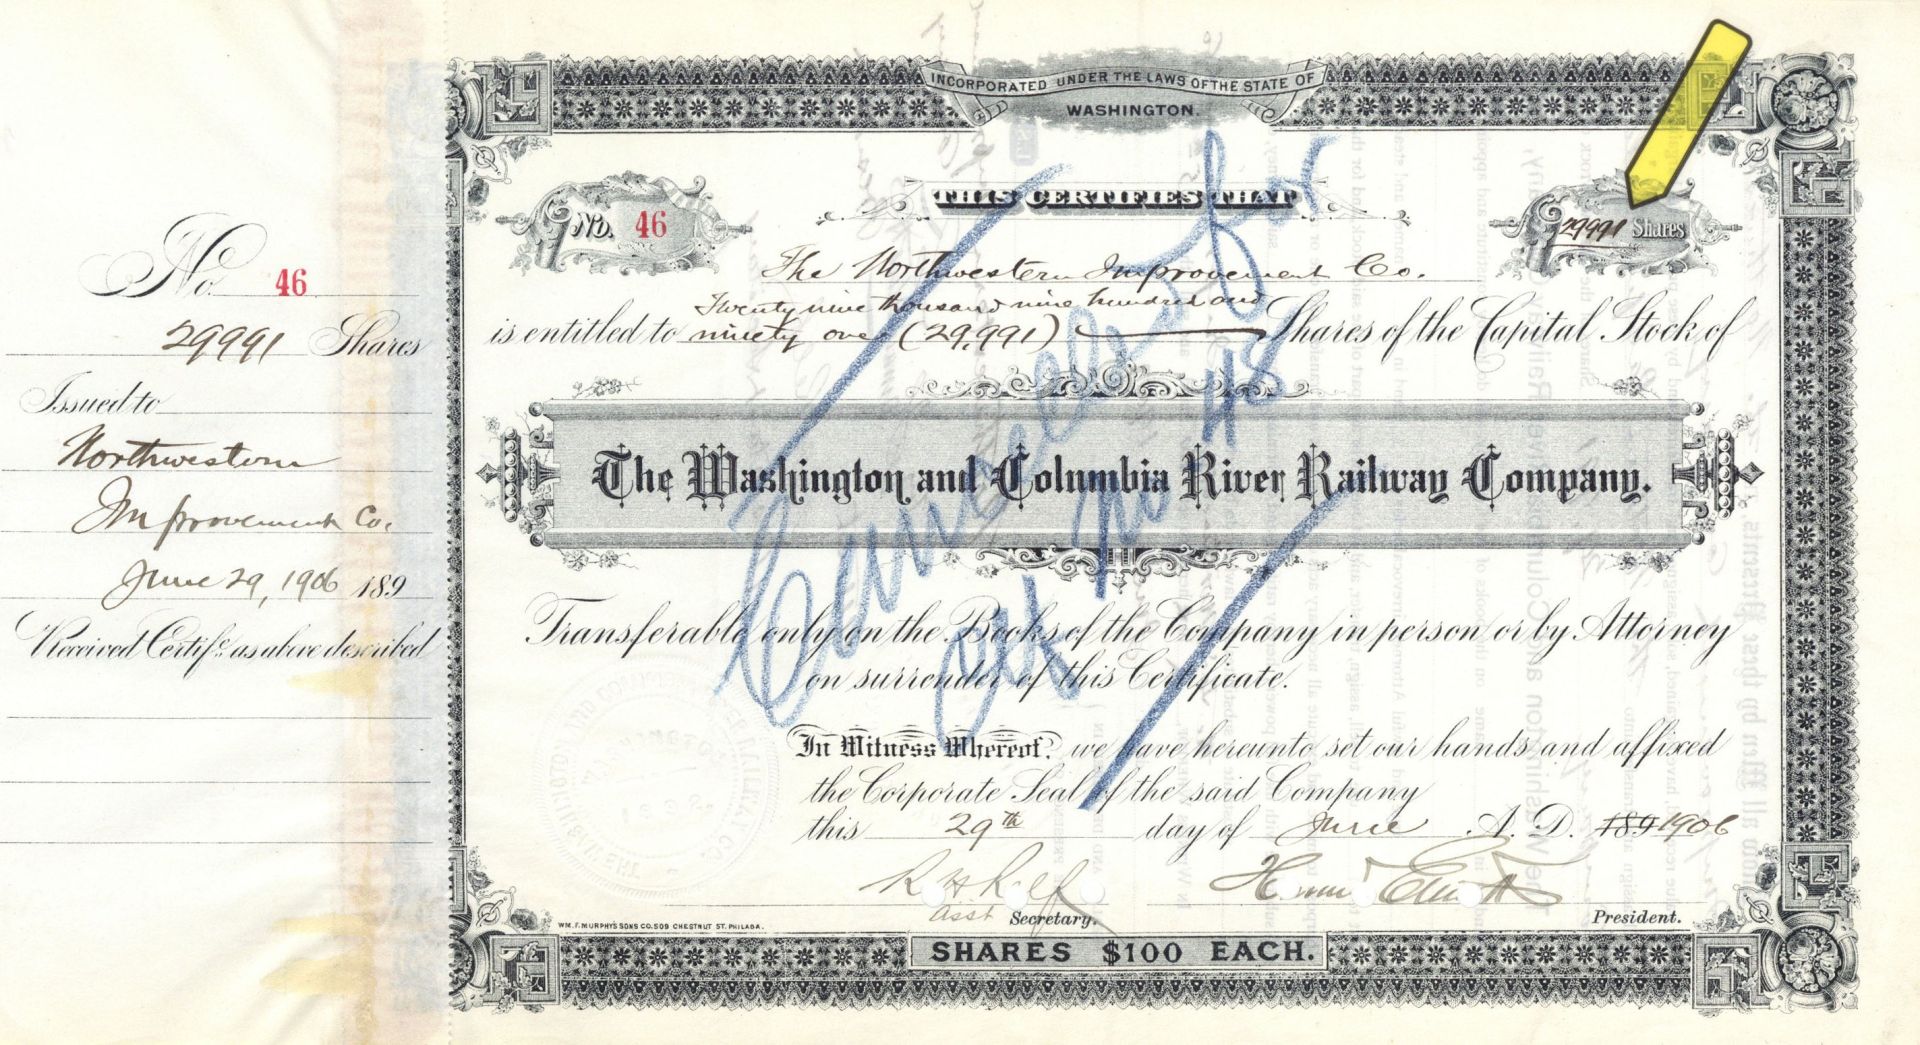 INCORPORATED UNDER THE LAWS OF THE STATE OF
WASHINGTON.
THIS CERTIFIES THAT
No. 46
29991 Shares
The Northwestern Improvement Co.
Twenty nine thousand nine hundred and
is entitled to ninety one (29,991) Shares of the Capital Stock of
The Washington and Columbia River Railway Company.
Transferable only on the Books of the Company in person or by Attorney
on surrender of this Certificate.
In Witness Whereof, we have hereunto set our hands and affixed
the Corporate Seal of the said Company
this 29th day of June A. D. 189 1906
asst Secretary.
President.
WM. F. MURPHY'S SONS CO. 509 CHESTNUT ST. PHILADA.
SHARES $100 EACH.
Cancelled for
Ctf no 48
No. 46
29991 Shares
Issued to
Northwestern
Improvement Co.
June 29, 1906 189
Received Certife. as above described